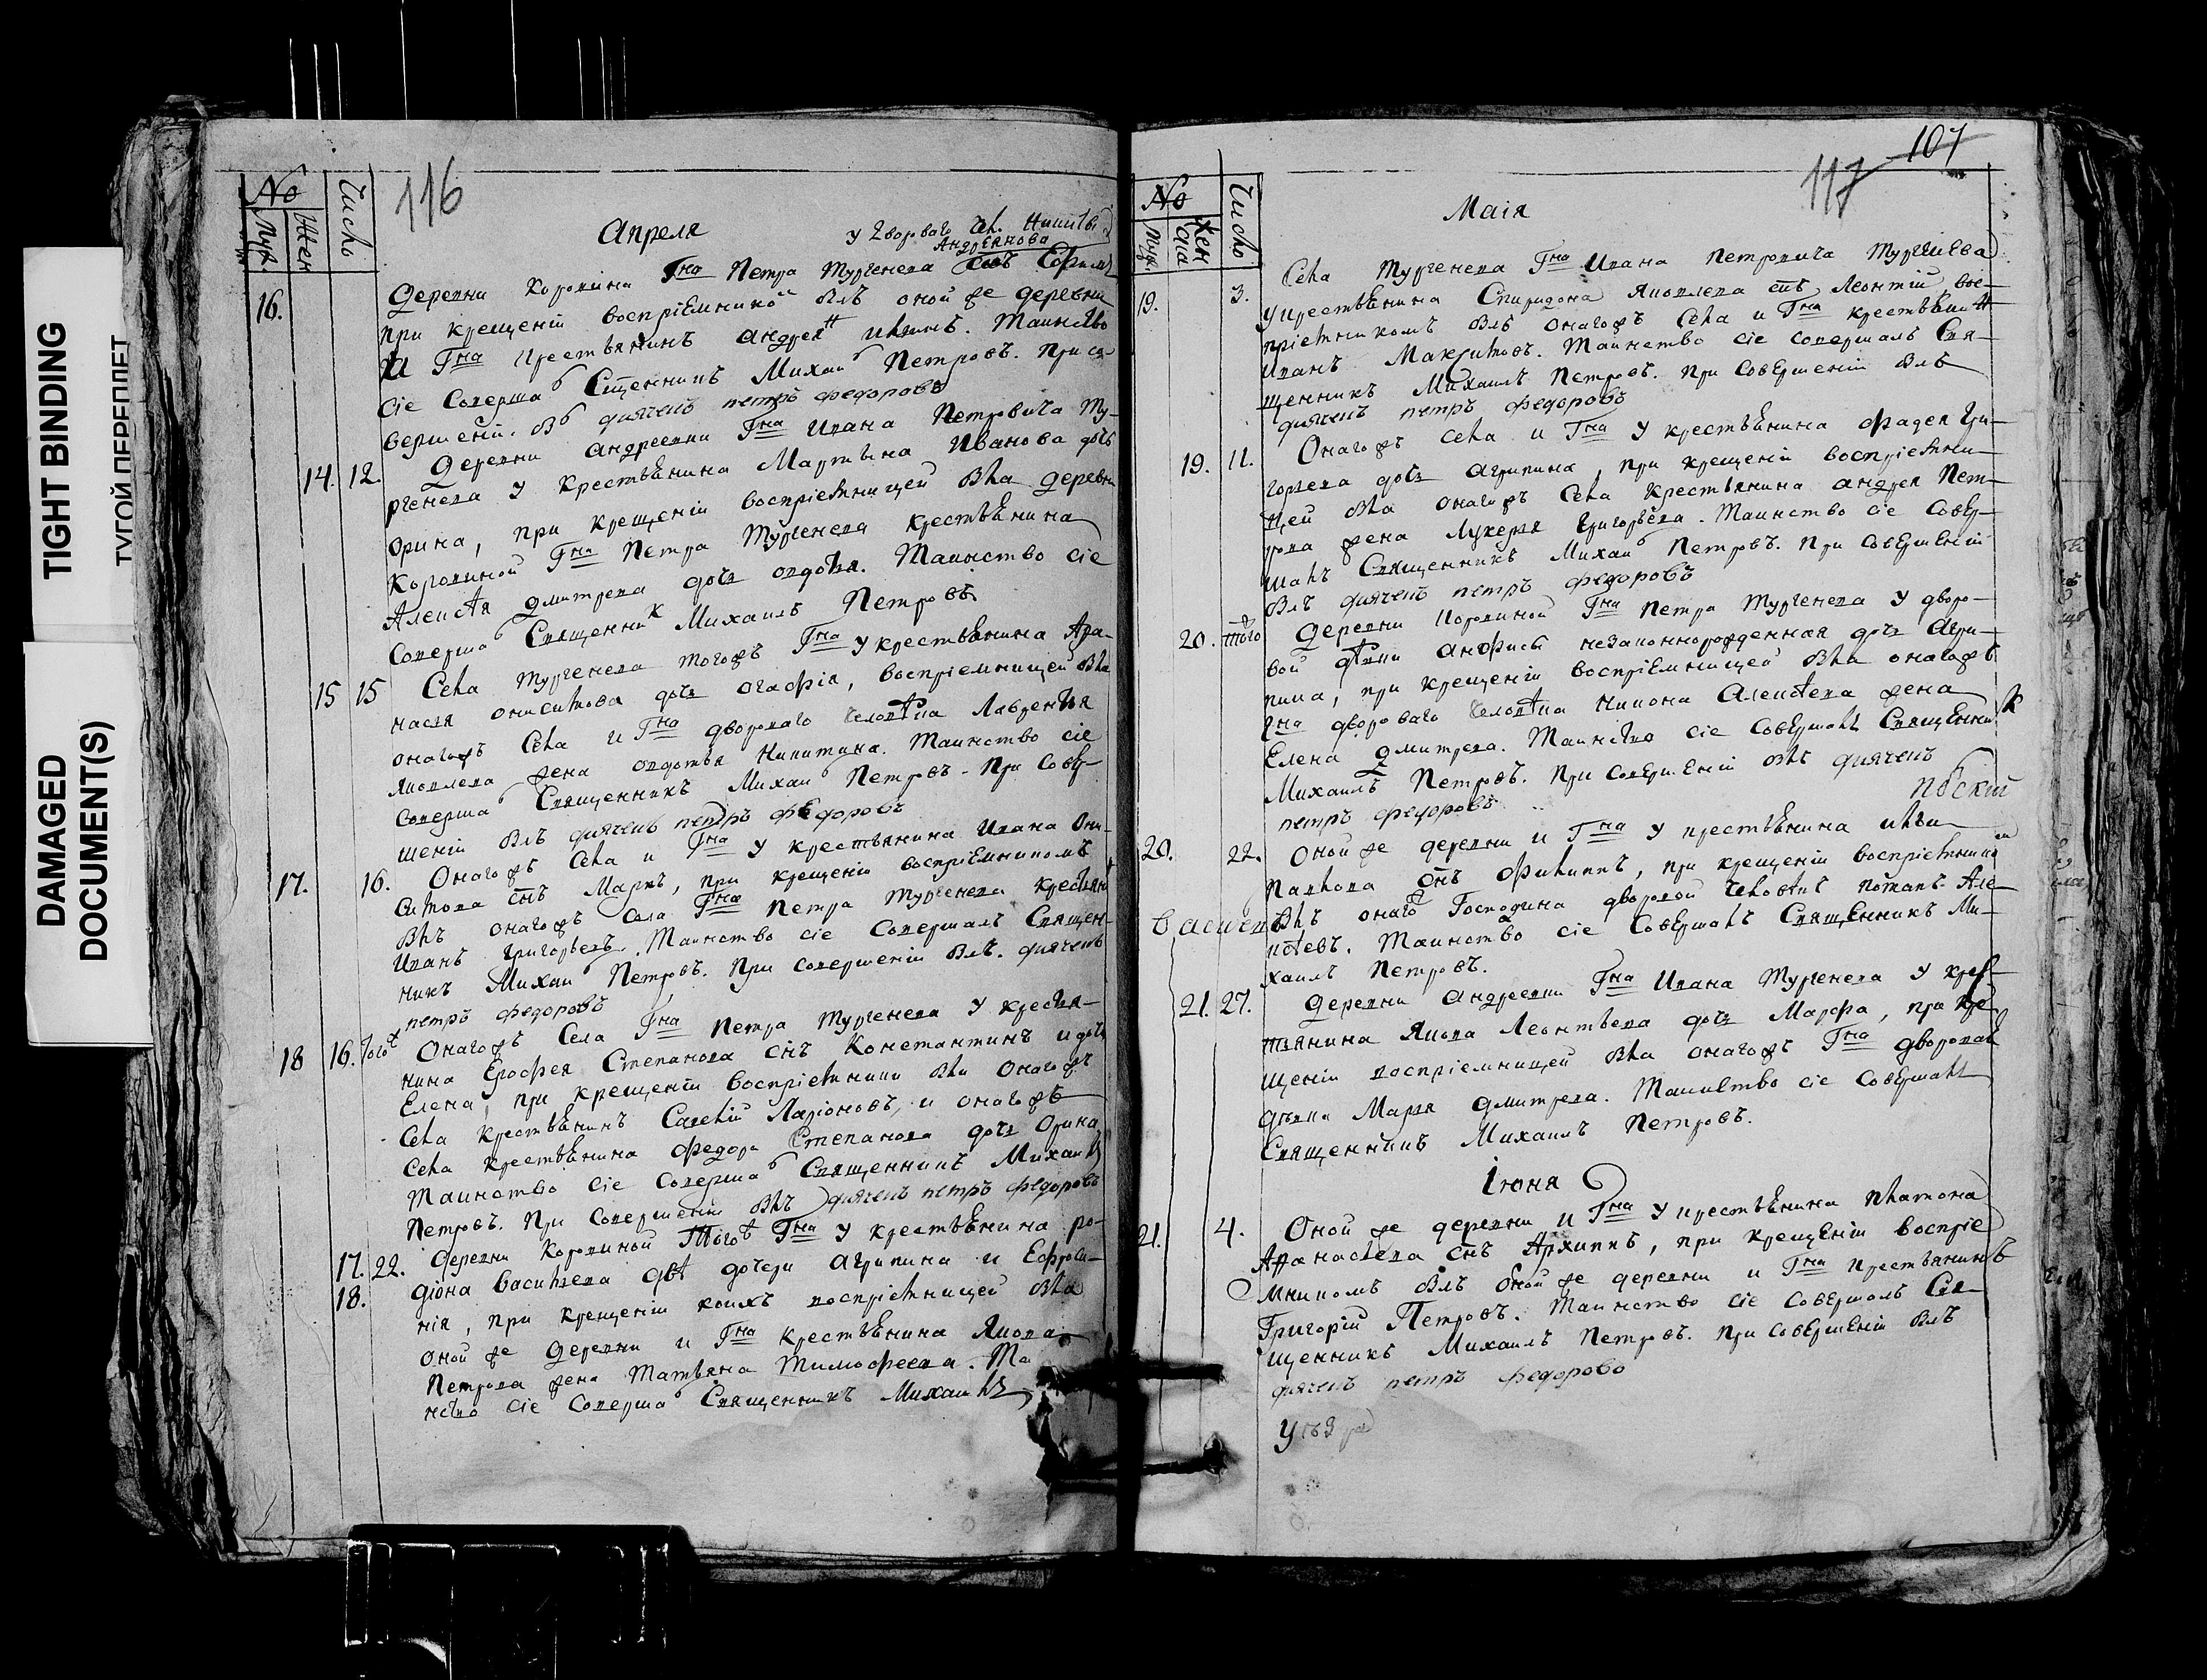 TIGHT BINDING
ТУГОЙ ПЕРЕПЛЕТ
DAMAGED
DOCUMENT(S)
116
№
Муж.
Жен
Число
Апреля
у Двороваго Чел.
Андреянова
16. Деревни Коровина Гна Петра Тургенева
при крещеніи воспріемникомъ былъ оной же деревни
и Гна крестьянинъ Андрей Таинство
сіе соверша Сщенникъ Михаи Петровъ. При со-
вершеніи дьяченъ петръ федоровъ
14. 12. Деревни Андреевки Гна Ивана Петровича Ту-
ргенева у крестьянина Мартына Иванова дочь
Орина, при крещеніи воспріемницей была деревни
Коровиной Гна Петра Тургенева крестьянина
Алексѣя Дмитрева дочь овдотья. Таинство сіе
соверша Священник Михаилъ Петровъ
15 15 Села Тургенева тогожъ Гна у крестьянина Афа-
насья онисимова дочь огафія, воспріемницей была
онагожъ Села и Гна двороваго человѣка Лаврентья
Яковлева жена овдотья Никитина. Таинство сіе
соверша Священникъ Михаи Петровъ. При Совер-
шеніи былъ дьяченъ петръ федоровъ
17. 16. Онагожъ Села и Гна у крестьянина Ивана Они-
симова снъ Маркъ, при крещеніи воспріемникомъ
былъ онагожъ Села Гна Петра Тургенева
Иванъ Григорьевъ. Таинство сіе совершалъ Священ-
никъ Михаи Петровъ. При совершеніи былъ дьяченъ
петръ федоровъ
18 16. Тогож Онагожъ Села Гна Петра Тургенева у крестья-
нина Ерофея Степанова снъ Константинъ и дочь
Елена, при крещеніи воспріемники были онагожъ
Села крестьянинъ Савелій Ларіоновъ, и онагожъ
Села крестьянина федора Степанова дочь Орина,
Таинство сіе соверша Священникъ Михаилъ
Петровъ. При совершеніи былъ дьяченъ петръ федоровъ
17. 22. Деревни Коровиной Тогож Гна у крестьянина ро-
18. діона Васильева двѣ дочери Агрипина и Ефроси-
нія, при крещеніи коихъ воспріемницей была
оной же деревни и Гна крестьянина Якова
Петрова жена Татьяна Тимофеева. Таи
нство сіе Соверша Священникъ Михаилъ
107
117
№
Муж.
Жен
Число
Маія
19. 3. Села Тургенева Гна Ивана Петровича Тургенева
у крестьянина Спиридона Яковлева снъ Леонтій вос-
пріемникомъ былъ онагожъ Села и Гна крестьянин
Иванъ Максимовъ. Таинство сіе совершалъ Свя-
щенникъ Михаилъ Петровъ. При Совершеніи былъ
дьяченъ петръ федоровъ
19. 11. Онагожъ Села и Гна у крестьянина фадея Гри-
горьева дочь Агрипина, при крещеніи воспріемни-
цей была онагожъ Села крестьянина андрея Пет-
рова жена Лукерья Григорьева. Таинство сіе Совер-
шалъ Священникъ Михаи Петровъ. При Совершеніи
былъ дьяченъ петръ федоровъ
20. тогож Деревни Коровиной Гна Петра Тургенева у дворо-
вой дѣвки анфисы незаконнорожденная дочь Агри-
пина, при крещеніи воспріемницей была онагожъ
Гна двороваго человѣка Никона Алексѣева жена
Елена Дмитрева. Таинство сіе Совершалъ Священник
Михаилъ Петровъ. При Совершеніи былъ дьяченъ
петръ федоровъ
20. 22. Оной же деревни и Гна у крестьянина Ильи
Павлова снъ Филиппъ, при крещеніи воспріемником
былъ онаго Господина дворовой человѣкъ потапъ Але-
ксѣевъ. Таинство сіе Совершалъ Священникъ Ми-
хаилъ Петровъ.
21. 27. Деревни Андреевки Гна Ивана Тургенева у крес-
тьянина Якова Леонтьева дочь Марфа, при кре-
щеніи воспріемницей была онагожъ Гна дворовая
дѣвка Марья Дмитрева. Таинство сіе Совершалъ
Священникъ Михаилъ Петровъ.
Іюня
21. 4. Оной же деревни и Гна у крестьянина Платона
Афанасьева снъ Архипъ, при крещеніи воспріе
мникомъ былъ Оной же деревни и Гна крестьянинъ
Григорій Петровъ. Таинство сіе Совершалъ Свя-
щенникъ Михаилъ Петровъ. При Совершеніи былъ
дьяченъ петръ федорово